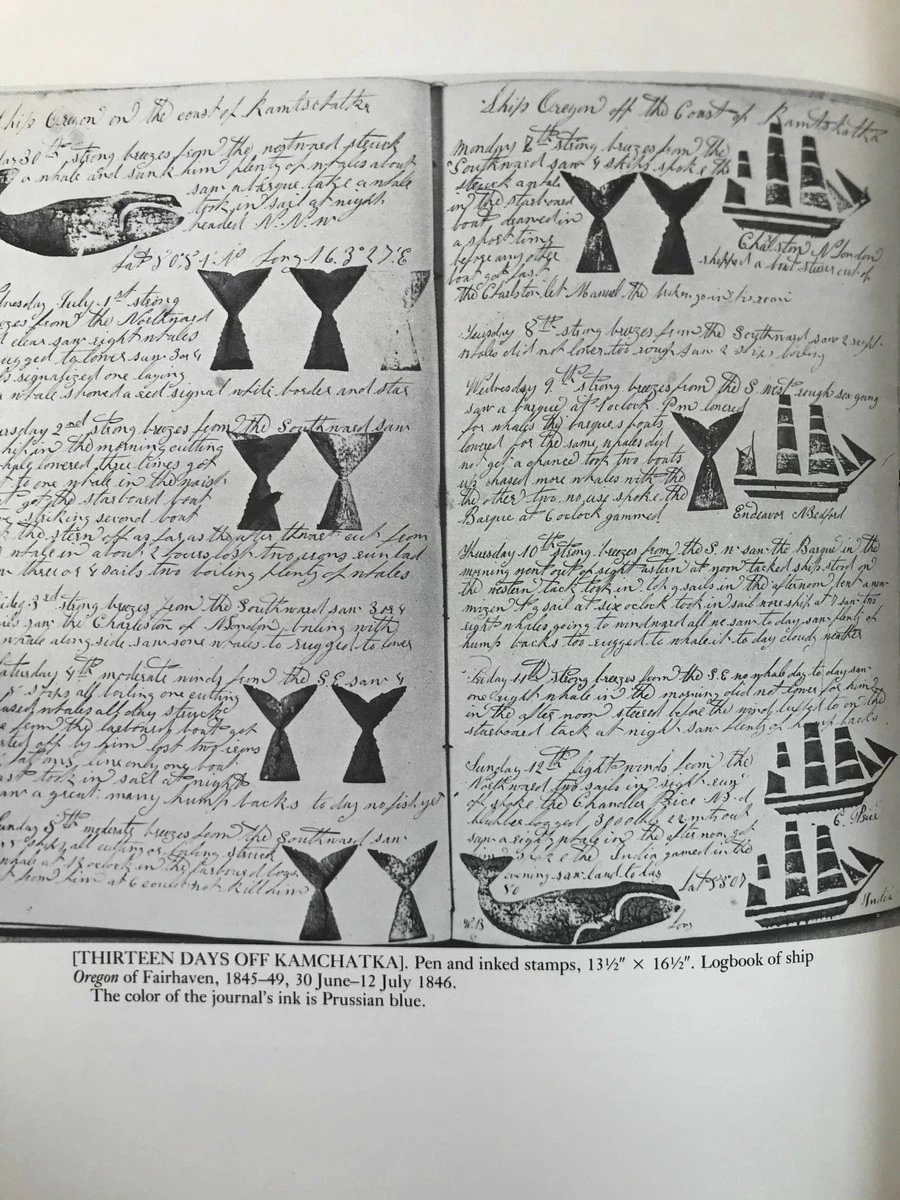 Ship Oregon on the coast of Kamtschatka
30th strong breezes from the westward struck
a whale and sunk him plenty of whales about
saw a barque take a whale
took in sail at night
headed N.N.W
Lat 50,51,N Long 163°27'E
July 1st strong
from the Northward
clear saw right whales
rugged to lower saw 3 or 4
signalized one laying
a whale showed a red signal white border and star
2nd strong breezes from the Southward saw
ship in the morning cutting
lowered three times got
to one whale in the
got the starboard boat
striking second boat
the stern off as far as the after thwart cut from
whale in about 2 hours lost two irons
three or 4 sails two boiling plenty of whales
3rd strong breezes from the Southward saw 3 or 4
saw the Charleston of N London boiling with
whale along side saw some whales to rugged to lower
4th moderate winds from the S.E. saw 4
all boiling one cutting
whales all day struck
from the larboard boat got
off by him lost two irons
only one boat
took in sail at night
saw a great many hump backs to day no fish yet
5th moderate breezes from the Southward saw
all cutting or boiling struck
whale at 12 oclock in the larboard
from him at 6 could not kill him
Ship Oregon off the Coast of Kamtshatka
Monday 6th strong breezes from the
Southward saw 4 ships spoke
struck a whale
in the starboard
boat
a short time
before any other
boat got fast
Charlston N London
shipped a boat steerer out of
the Charlston let Manuel the in his room
Tuesday 8th strong breezes from the Southward saw 2 right
whales did not lower too rough saw 2 ships boiling
Wednesday 9th strong breezes from the S. west rough sea going
saw a barque at 1 oclock P.m lowered
for whales the barque's boats
lowered for the same whales did
not get a chance took two boats
up chased more whales with the
the other two no use spoke the
Barque at 6 oclock gammed
Endeavor N Bedford
Thursday 10th strong breezes from the S.W. saw the Barque in the
morning went out of sight astern at noon tacked ship stood on
the western tack took in sails in the afternoon bent a new
mizen sail at six oclock took in sail wore ship at 7 saw two
right whales going to windward all we saw to day saw plenty of
hump backs too rugged to whale it to day cloudy weather
Friday 11th strong breezes from the S.E. no whale day to day saw
one right whale in the morning did not lower for him
in the after noon steered before the wind luffed to on the
starboard tack at night saw plenty of hump backs
Sunday 12th light winds from the
Northward two sails in sight
spoke the Chandler Price N.B.d
3000 bbls 22 mts out
saw a right whale in the afternoon got
the India gamed in the
evening saw land to day
C. Price
Lat 55°07
50
Lon
India
[THIRTEEN DAYS OFF KAMCHATKA]. Pen and inked stamps, 13½" × 16½". Logbook of ship
Oregon of Fairhaven, 1845–49, 30 June–12 July 1846.
The color of the journal's ink is Prussian blue.